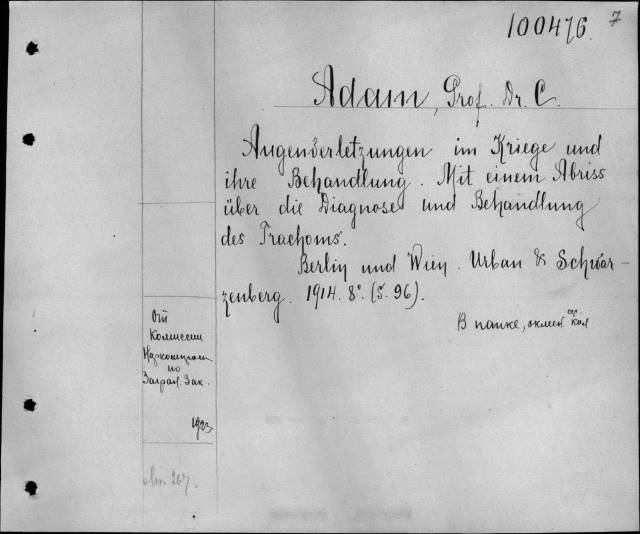 100476. 7
Adam, Prof. Dr. C.
Augenverletzungen im Kriege und
ihre Behandlung. Mit einem Abriss
über die Diagnose und Behandlung
des Trachoms.
Berlin und Wien. Urban & Schwar-
zenberg. 1914. 8°. (S. 96).
В папке, оклеен.
От
Комиссии
по
Заграл. Зак.
1923